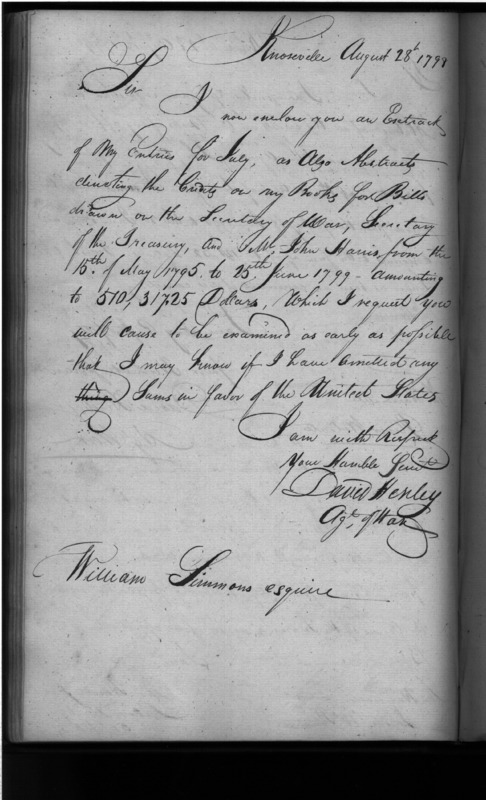 Knoxville August 28th 1799
Sir
I now enclose you an Extract
of My Entries for July, as Also Abstracts
denoting the Credits on my Books for Bills
drawn on the Secretary of War, Secretary
of the Treasury, and Mr. John Harris, from the
15th of May 1795 to 25th June 1799 - amounting
to 510,317.25 Dollars, Which I request you
will cause to be examined as early as possible
that I may know if I have Omitted any
thing Sums in favor of the United States
I am with Respect
Your Humble Servt
David Henley
Agt. of War
William Simmons esquire